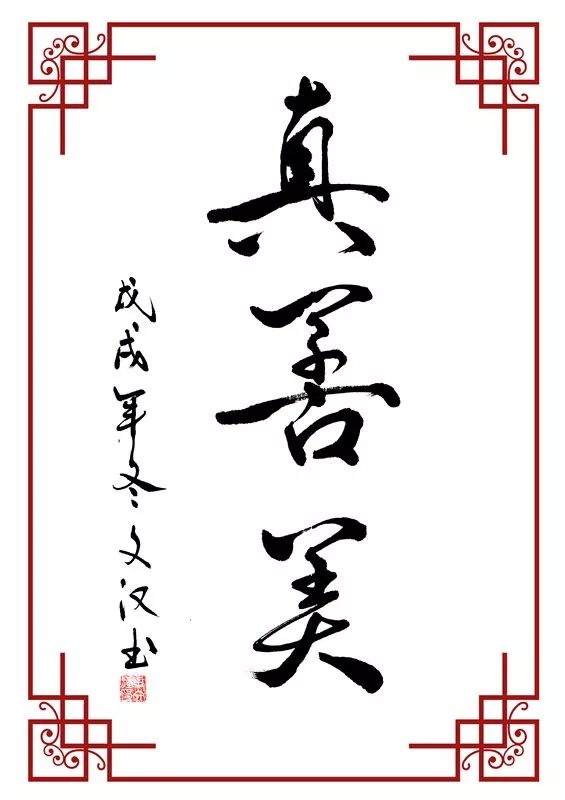 真善美
戊戌年冬文汉书